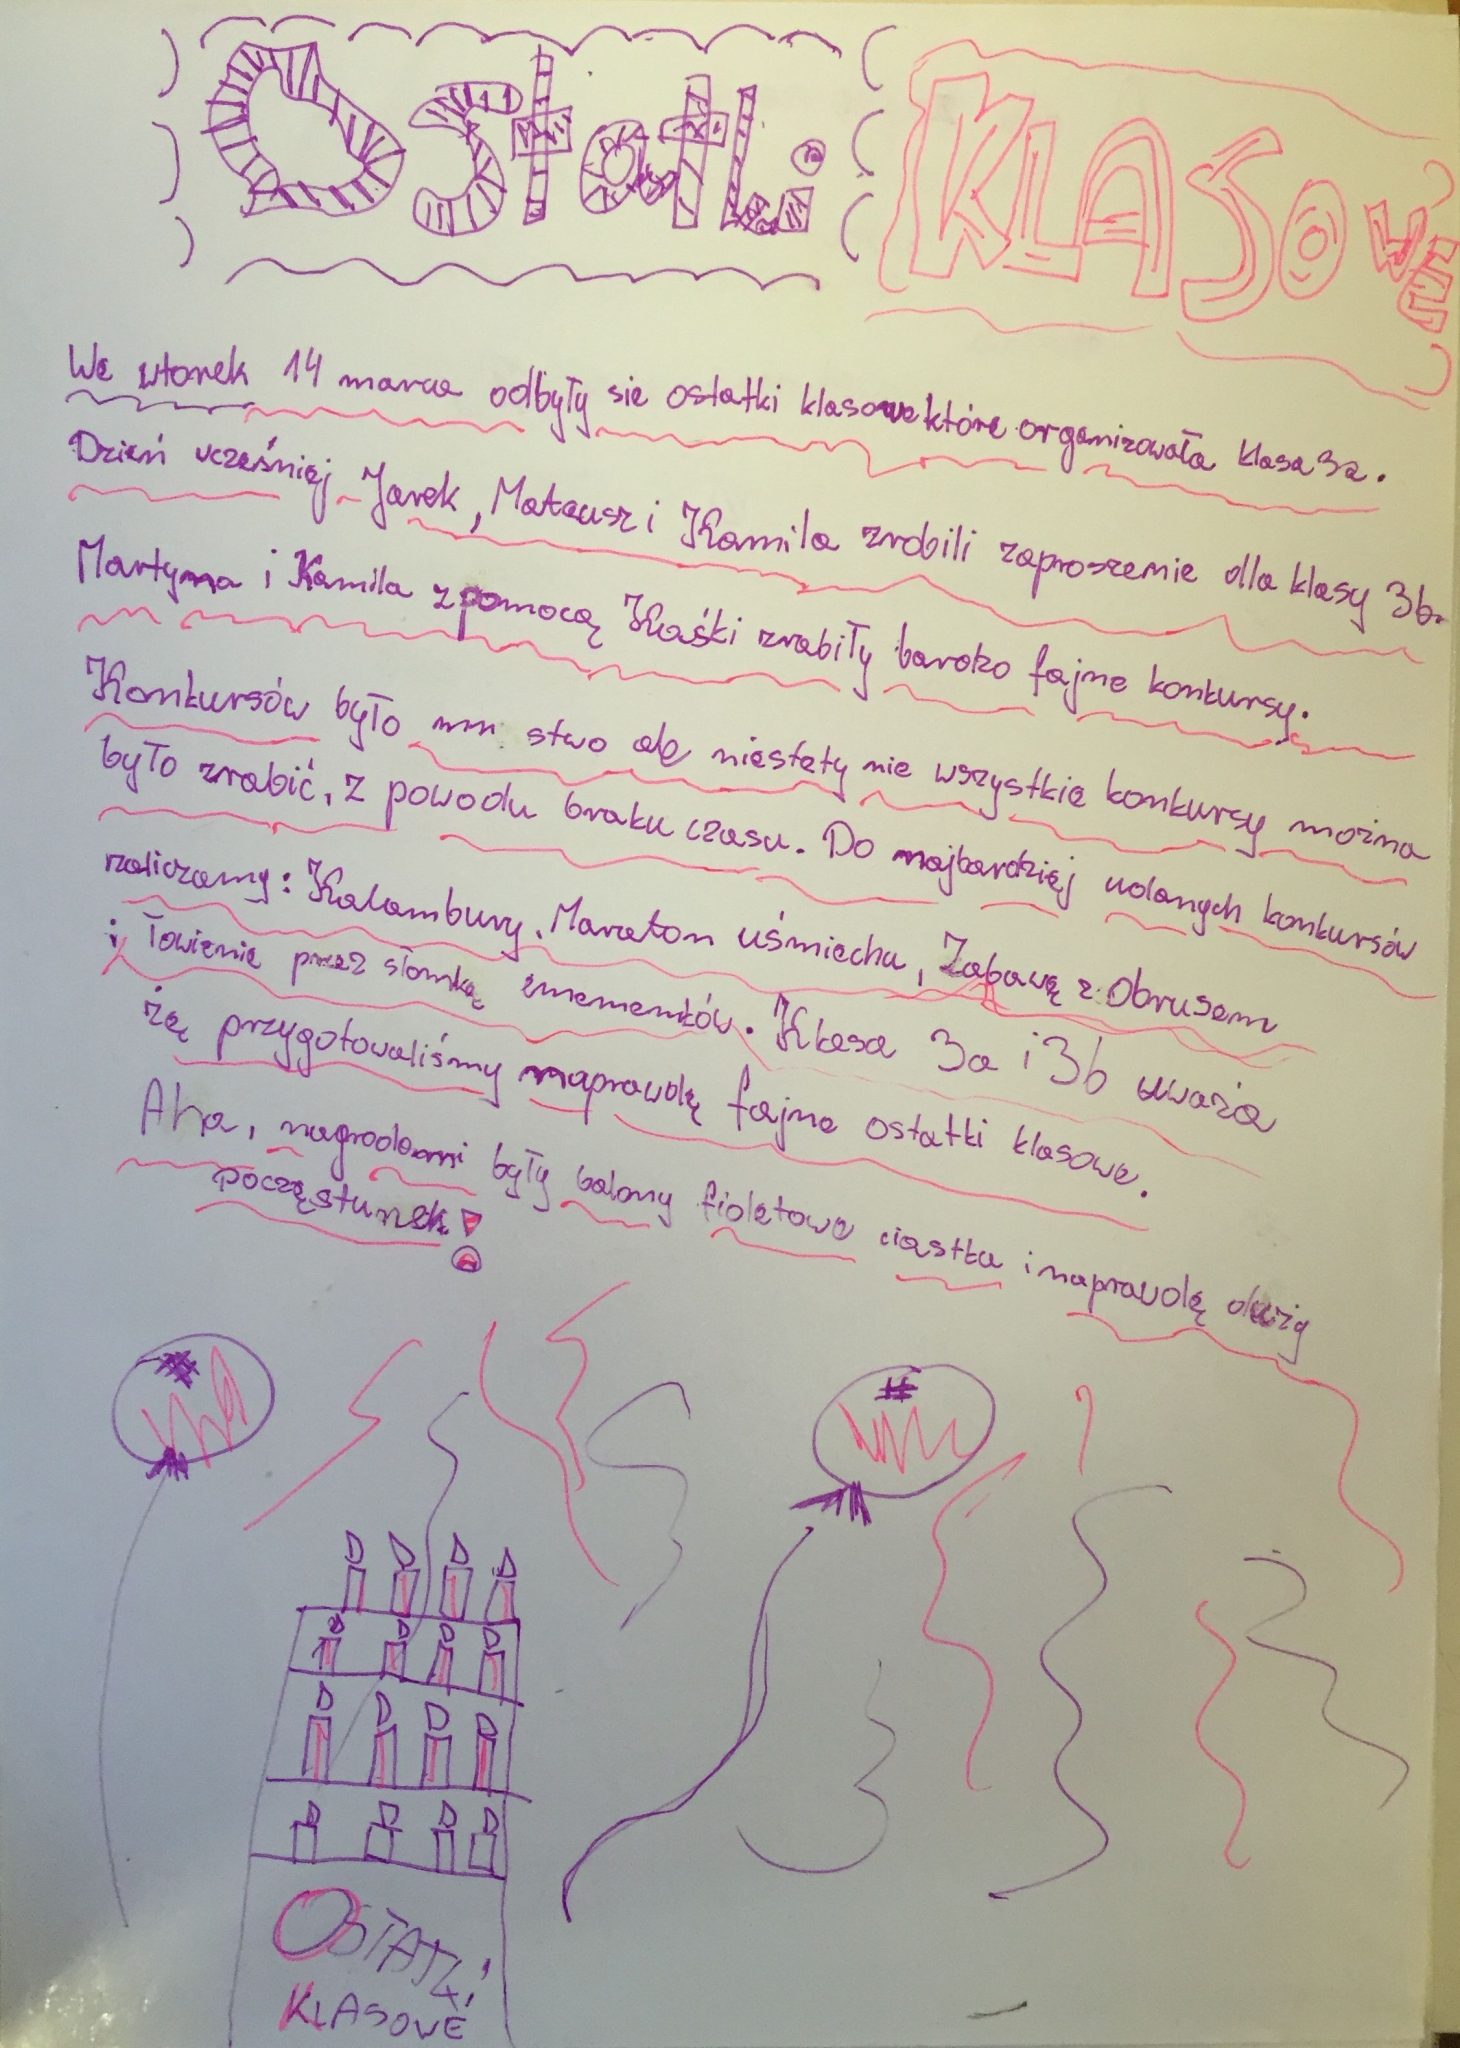 Ostatki KLASOWE
We wtorek 14 marca odbyły sie ostatki klasowe które organizowała klasa 3a.
Dzień wcześniej Jarek, Mateusz i Kamila zrobili zaproszenie dla klasy 3b.
Martyna i Kamila z pomocą Kaśki zrabiły bardzo fajne konkursy.
Konkursów było mnustwo ale niestety nie wszystkie konkursy można
było zrabić, z powodu braku czasu. Do najbardziej udanych konkursów
zaliczamy: Kalambury, Maraton uśmiechu, Zabawę z Obrusem
i łowienie przez słomkę Klasa 3a i 3b uważa
żę przygotowaliśmy naprawdę fajne ostatki klasowe.
Aha, nagrodami były balony fioletowe ciastka i naprawdę duży
poczęstunek!
OSTATKI
KLASOWE